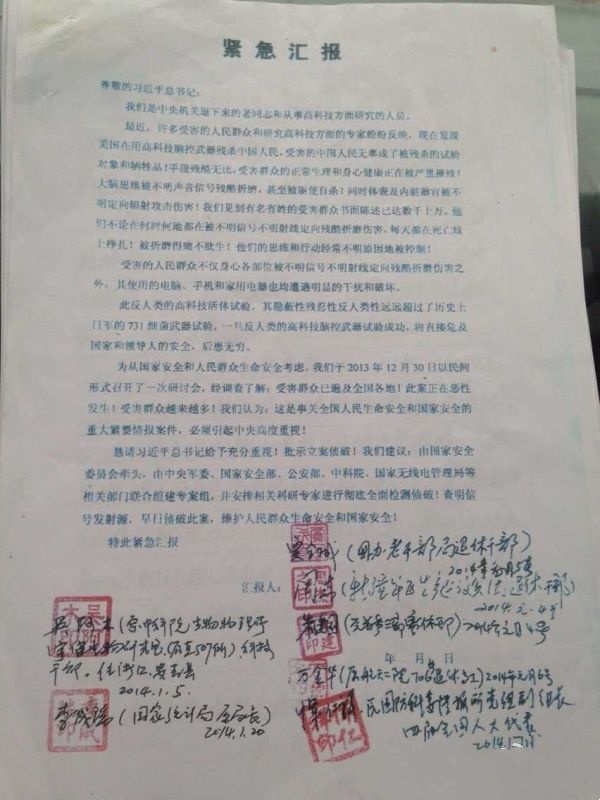 紧急汇报
尊敬的习近平总书记：
我们是中央机关退下来的老同志和从事高科技方面研究的人员。
最近，许多受害的人民群众和研究高科技方面的专家纷纷反映，现在发现
美国在用高科技脑控武器残杀中国人民，受害的中国人民无辜成了被残杀的试验
对象和牺牲品！手段残酷无比，受害群众的正常生理和身心健康正在被严重摧残！
大脑思维被不明声音信号残酷折磨，甚至被驱使自杀！同时体表及内脏器官被不
明定向辐射攻击伤害！我们见到有名有姓的受害群众书面陈述已达数千上万，他
们不论在何时何地都在被不明信号不明射线定向残酷折磨伤害，每天都在死亡线
上挣扎！被折磨得痛不欲生！他们的思维和行动经常不明原因地被控制！
受害的人民群众不仅身心各部位被不明信号不明射线定向残酷折磨伤害之
外，其使用的电脑、手机和家用电器也均遭遇明显的干扰和破坏。
此反人类的高科技活体试验，其隐蔽性残忍性反人类性远远超过了历史上
日军的 731 细菌武器试验，一旦反人类的高科技脑控武器试验成功，将直接危及
国家和领导人的安全，后患无穷。
为从国家安全和人民群众生命安全考虑，我们于 2013 年 12 月 30 日以民间
形式召开了一次研讨会，经调查了解：受害群众已遍及全国各地！此案正在恶性
发生！受害群众越来越多！我们认为：这是事关全国人民生命安全和国家安全的
重大紧要情报案件，必须引起中央高度重视！
恳请习近平总书记给予充分重视！批示立案侦破！我们建议：由国家安全
委员会牵头，由中央军委、国家安全部、公安部、中科院、国家无线电管理局等
相关部门联合组建专案组，并安排相关科研专家进行彻底全面检测侦破！查明信
号发射源，早日侦破此案，维护人民群众生命安全和国家安全！
特此紧急汇报
(国办老干部局退休干部)
汇报人：
2014年元月5号
2014.元.4号
2014年元月4号
年 月 日
万金华(原航天二院706退休高工)2014年元月6号
(原中科院生物物理研
2014.1.5.
李成瑞(国家统计局原局长)
2014.1.20
四届全国人大代表